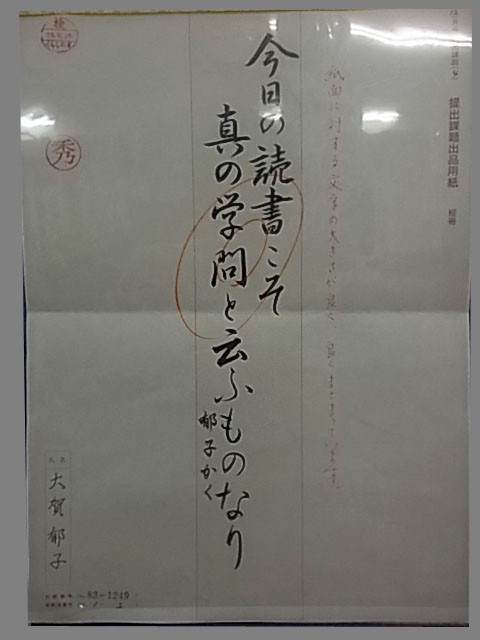 提出課題出品用紙
短冊
紙面に対する文字の大きさが良く、良くまとまっています。
今日の読書こそ
真の学問と云ふものなり
郁子かく
秀
氏名
大賀郁子
83-1249